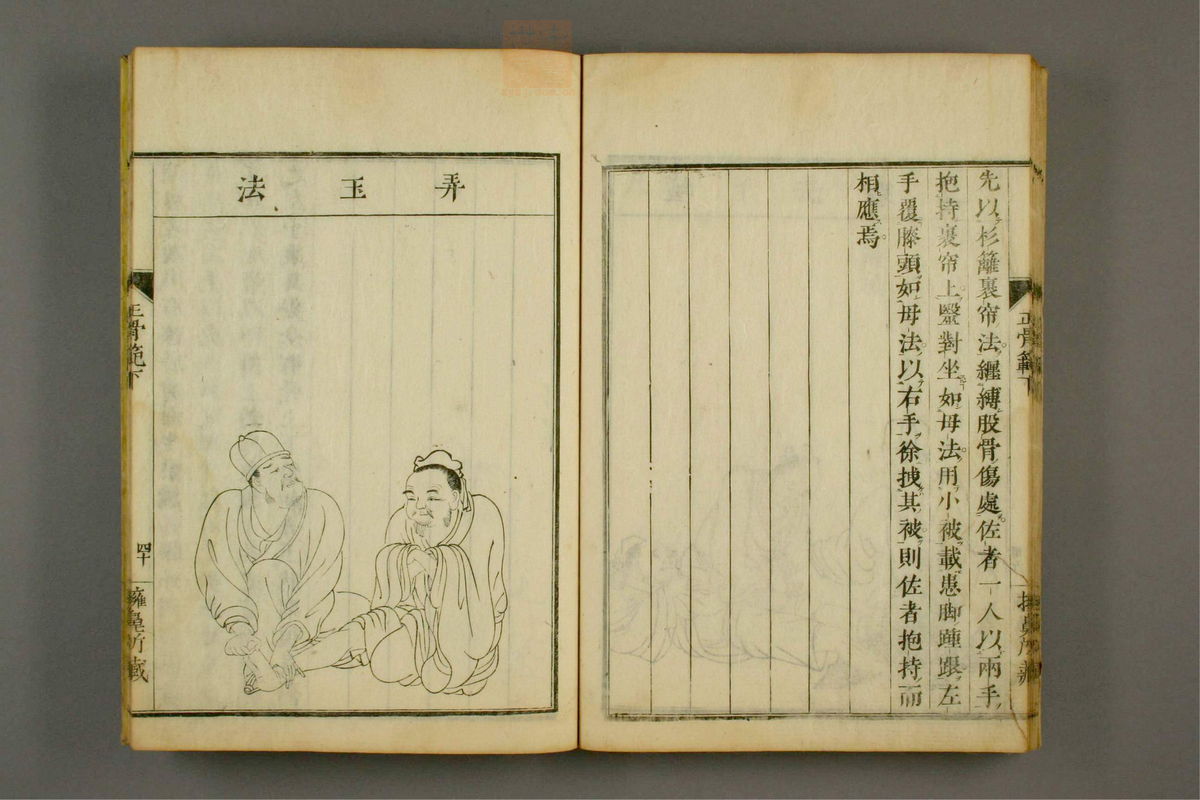 先以杉籬裹帘法纏縛股骨傷處佐者一人以兩手
抱持裹帘上醫對坐如母法用小被載患脚踵跟左
手覆膝頭如母法以右手徐拽其被則佐者抱持而
相應焉
正骨範下
弄玉法
正骨範下
四十